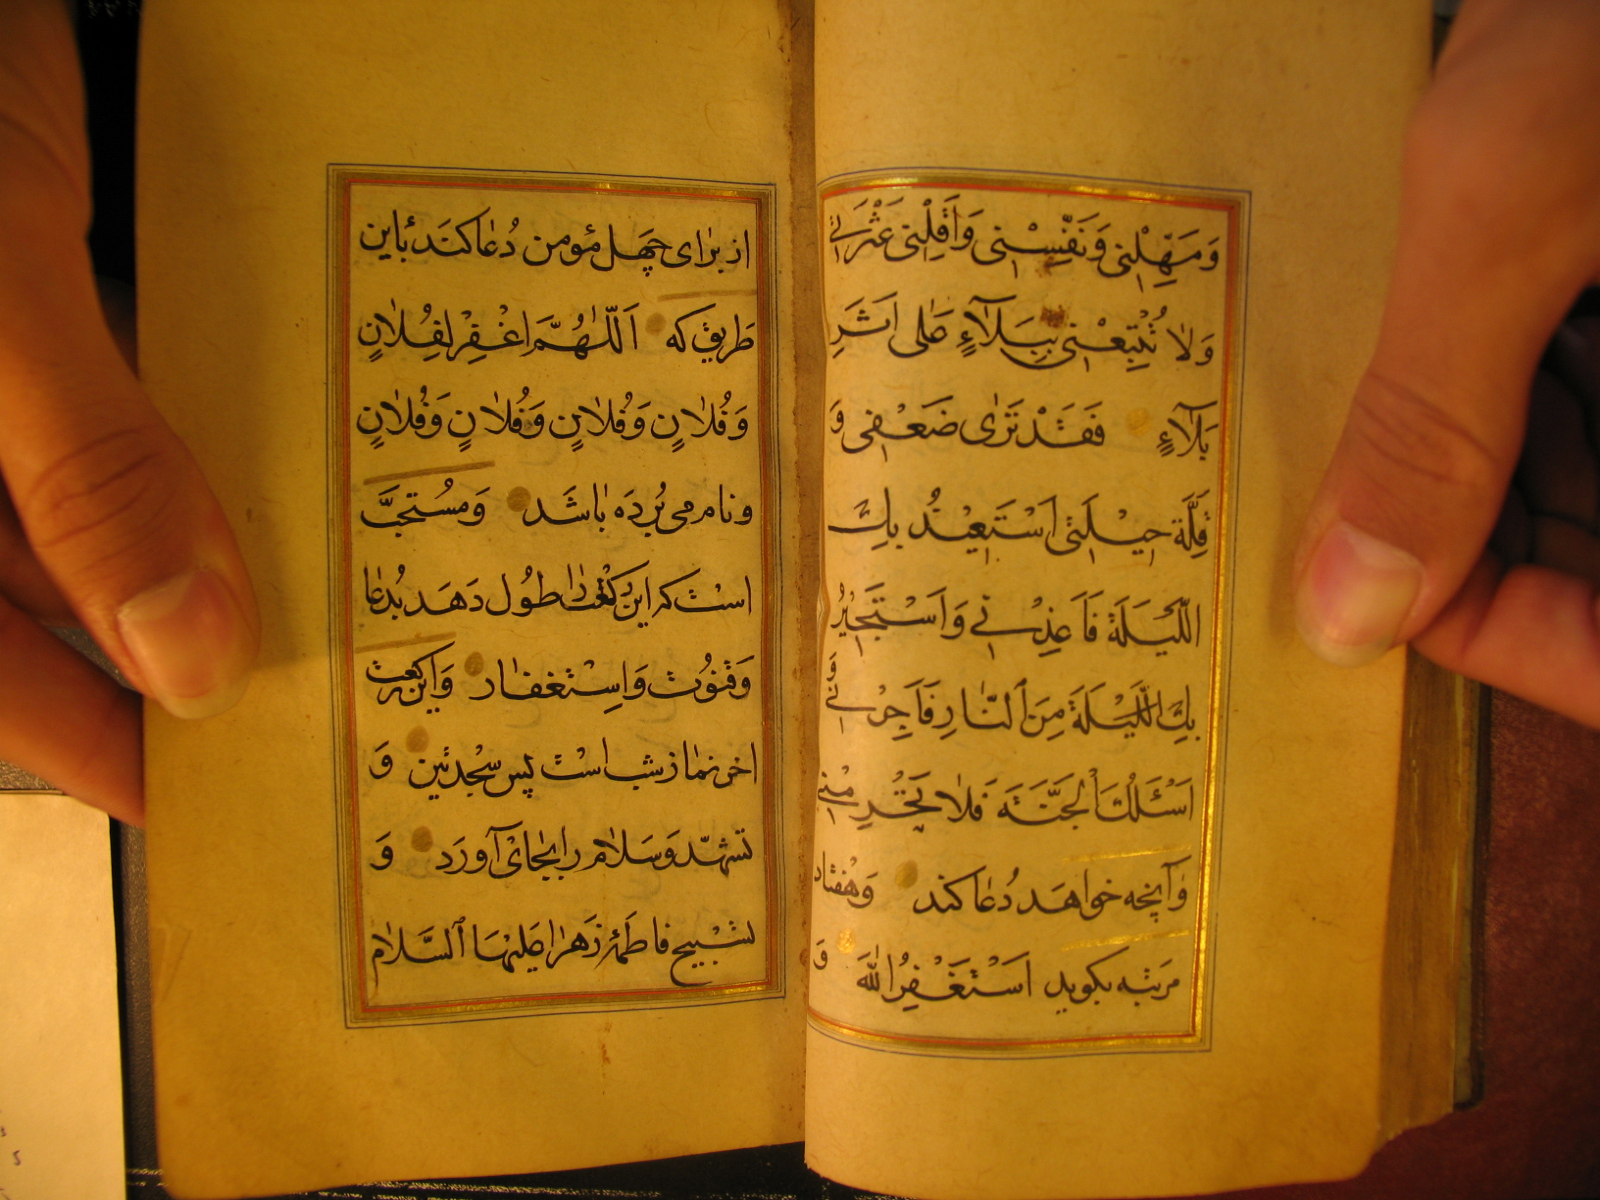 وَمَهِّلْنِی وَنَفِّسْنِی وَاَقِلْنِی عَثْرَتِی
وَلَا تُتْبِعْنِی بِبَلَآءٍ عَلٰی اَثَرِ
بَلَآءٍ فَقَدْ تَرٰی ضَعْفِی وَ
قِلَّةَ حِیْلَتِی اَسْتَعِیْذُ بِكَ
اللَّیْلَةَ فَاَعِذْنِی وَاَسْتَجِیْرُ
بِكَ اللَّیْلَةَ مِنَ النَّارِ فَاَجِرْنِی وَ
اَسْئَلُكَ الْجَنَّةَ فَلَا تَحْرِمْنِی
وَآنچه خواهد دُعا کند وَهفتاد
مرتبه بکوید اَسْتَغْفِرُ اللّٰهَ وَ
از برای چهل مؤمن دُعا کند باین
طریق که اَللّٰهُمَّ اغْفِرْ لِفُلَانٍ
وَفُلَانٍ وَفُلَانٍ وَفُلَانٍ وَفُلَانٍ
و نام می بُرده باشد وَمُسْتَحَبّ
است که این رکعت را طول دَهد بدُعا
وَقنوُت وَاِسْتغفار وَاین رکعت
اخر نماز شب است پس سجدتین وَ
تشهّد وَسَلام را بجای آورد وَ
تسْبیح فاطمهٔ زهرا عَلیْهَا السَّلام